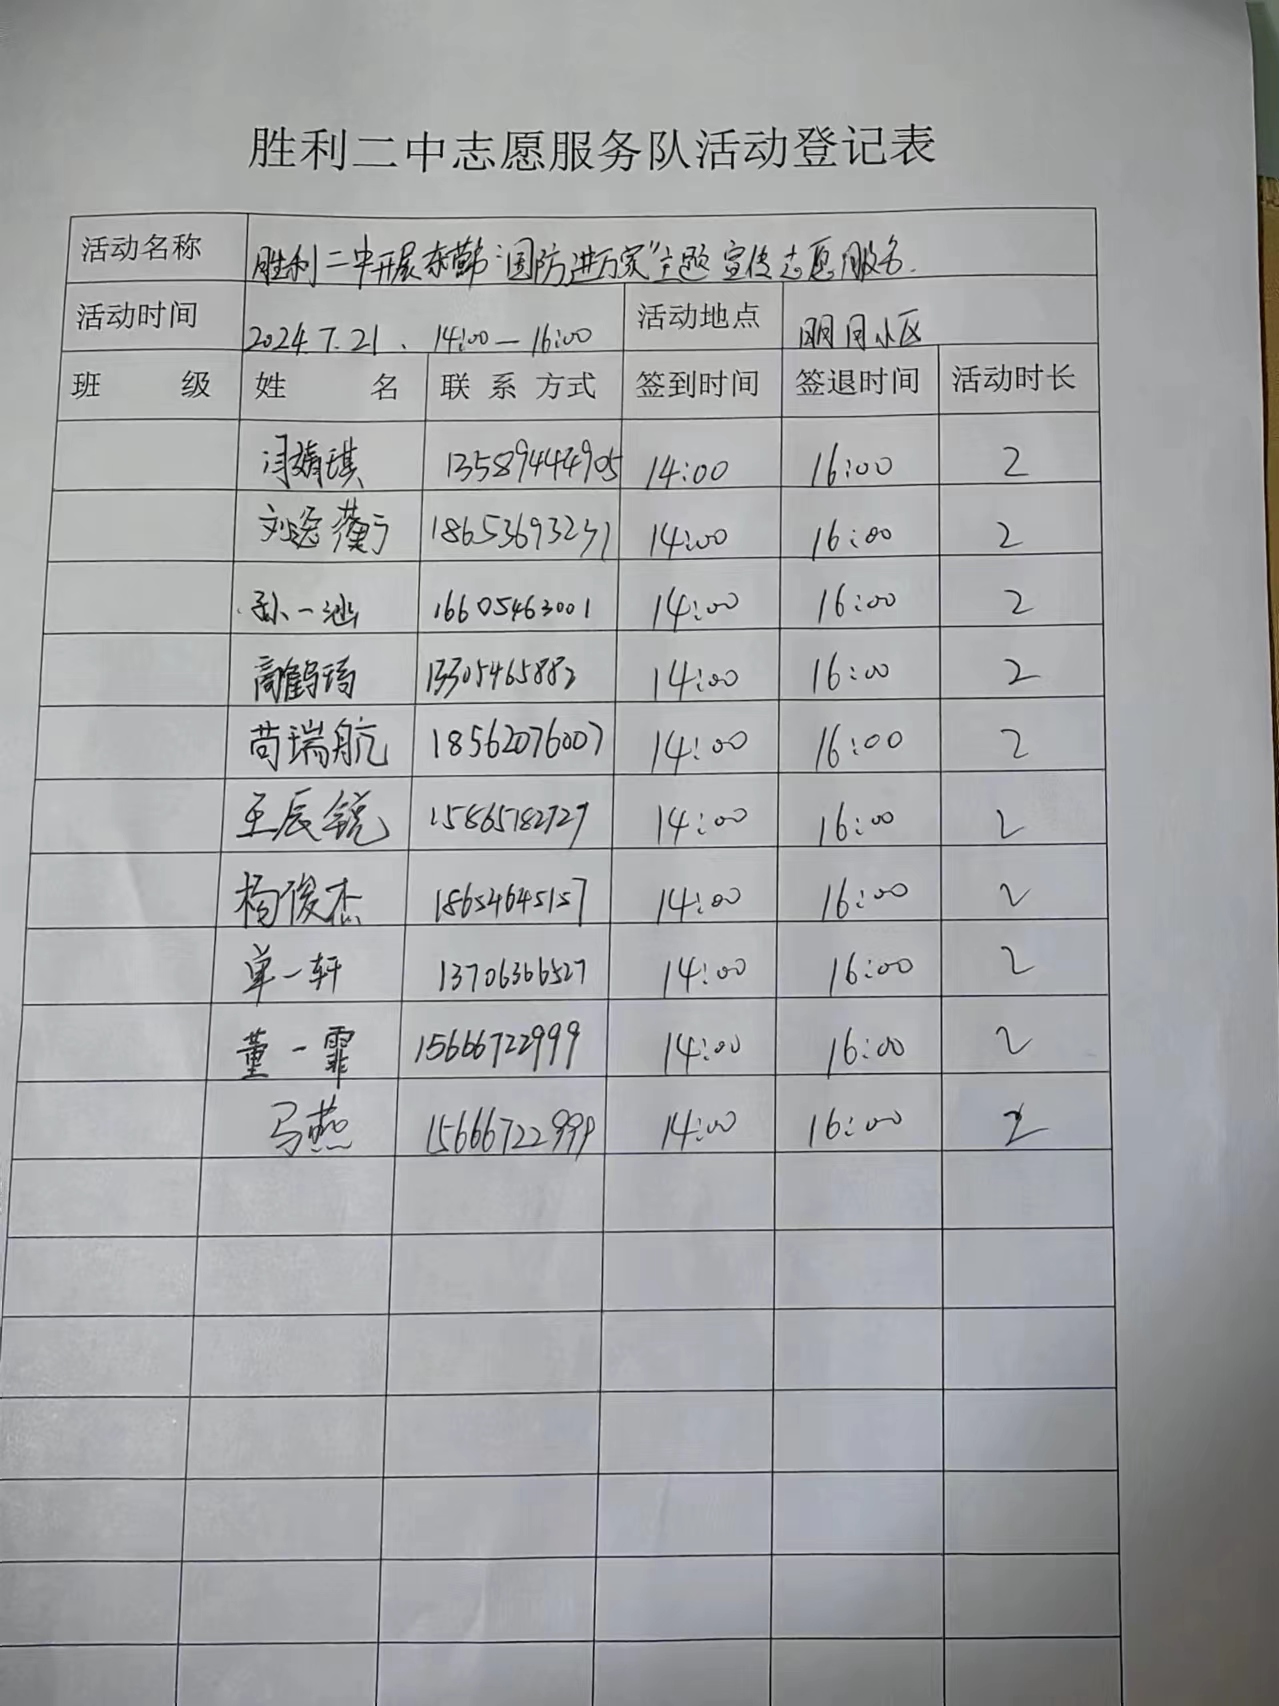 胜利二中志愿服务队活动登记表
活动名称 胜利二中开展东营市"国防进万家"主题宣传志愿服务.
活动时间 2024.7.21、14:00—16:00 活动地点 明月小区
班 级 姓 名 联系方式 签到时间 签退时间 活动时长
闫婧琪 13589444905 14:00 16:00 2
刘 186536932 14:00 16:00 2
孙一涵 16605463001 14:00 16:00 2
高鹤 1330546588 14:00 16:00 2
苟瑞航 18562076007 14:00 16:00 2
王辰锐 15865182729 14:00 16:00 2
杨俊杰 18654645157 14:00 16:00 2
单一轩 13706366527 14:00 16:00 2
董一霏 15666722999 14:00 16:00 2
马燕 15666722999 14:00 16:00 2